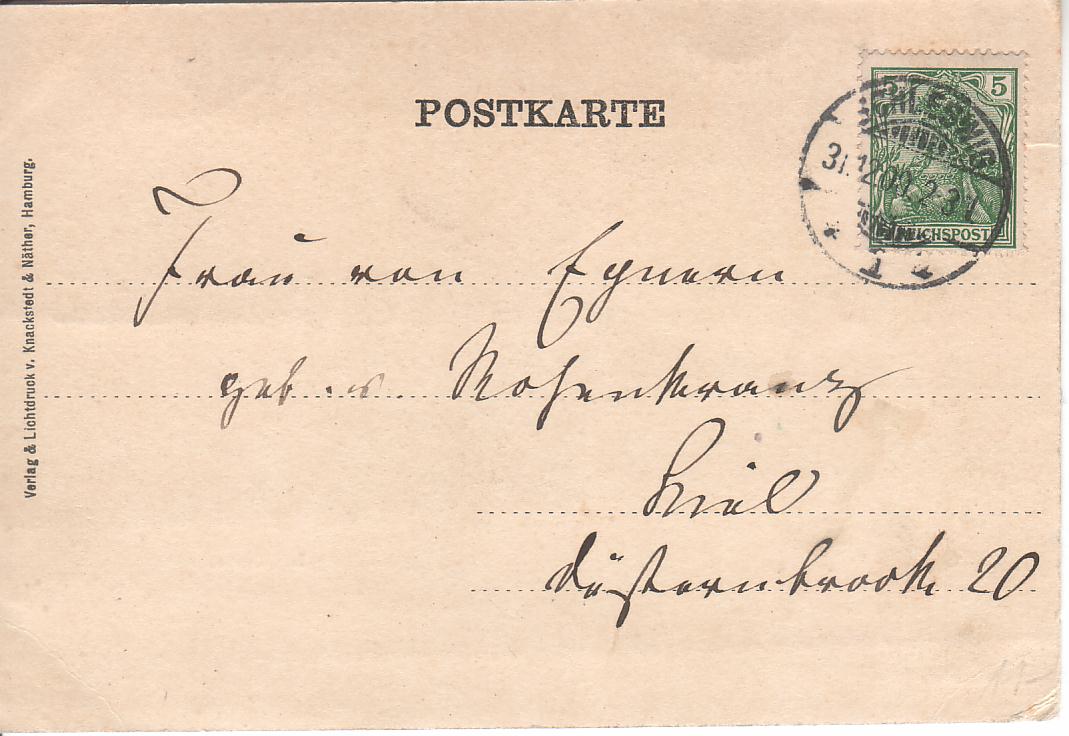 POSTKARTE
5 5
REICHSPOST
SCHLESWIG
31.12.00. 2-3N
* 1 *
Frau von
geb. v. Rosenkranz
Kiel
Düsternbrook 20
Verlag & Lichtdruck v. Knackstedt & Näther, Hamburg.